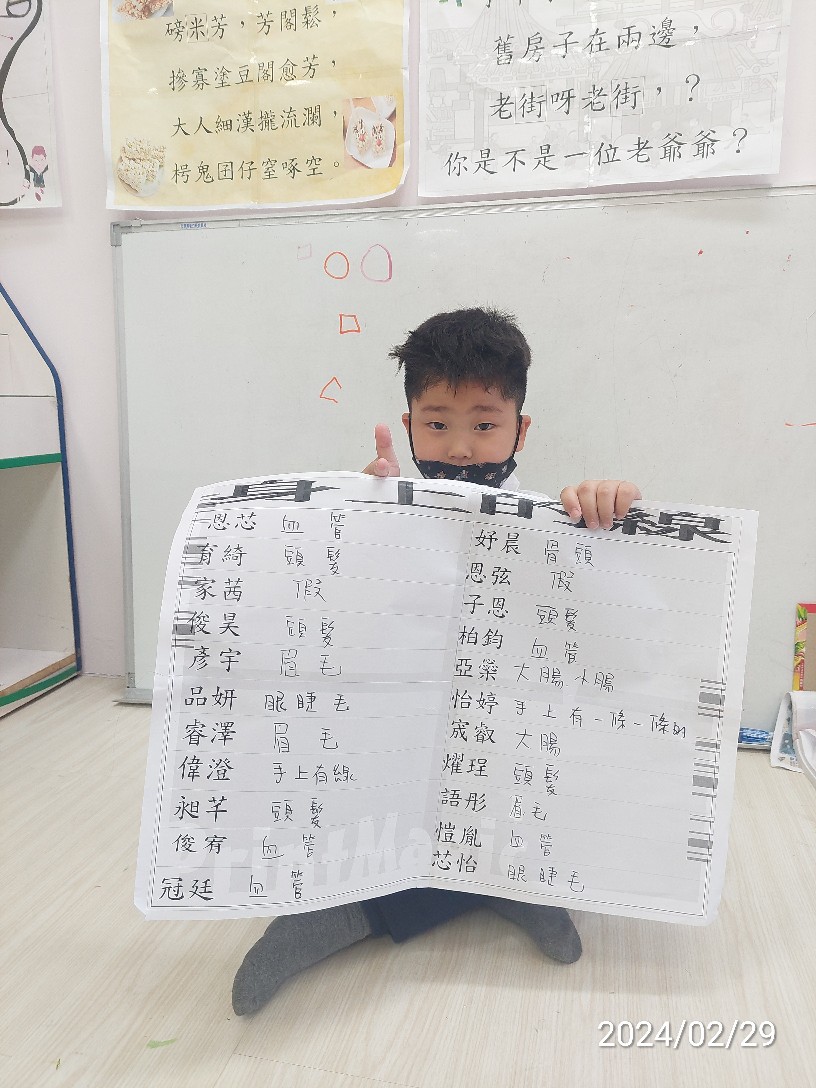 磅米芳，芳閣鬆，
摻寡塗豆閣愈芳，
大人細漢攏流瀾，
枵鬼囝仔窒啄空。
舊房子在兩邊，
老街呀老街，？
你是不是一位老爺爺？
身上的線
恩芯 血管
育綺 頭髮
家茜 假
俊昊 頭髮
彥宇 眉毛
品妍 眼睫毛
睿澤 眉毛
偉澄 手上有線
昶芊 頭髮
俊宥 血管
冠廷 血管
妤晨 骨頭
恩弦 假
子恩 頭髮
柏鈞 血管
亞築 大腸 小腸
怡婷 手上有一條一條的
宬叡 大腸
燿珵 頭髮
語彤 眉毛
愷胤 血管
芯怡 眼睫毛
PrintMa
2024/02/29